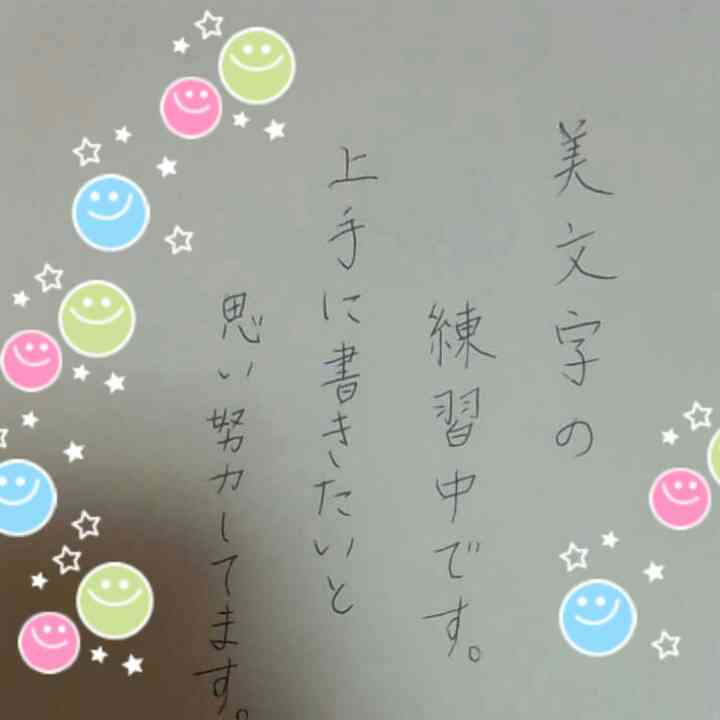 美文字の
練習中です。
上手に書きたいと
思い努力してます。